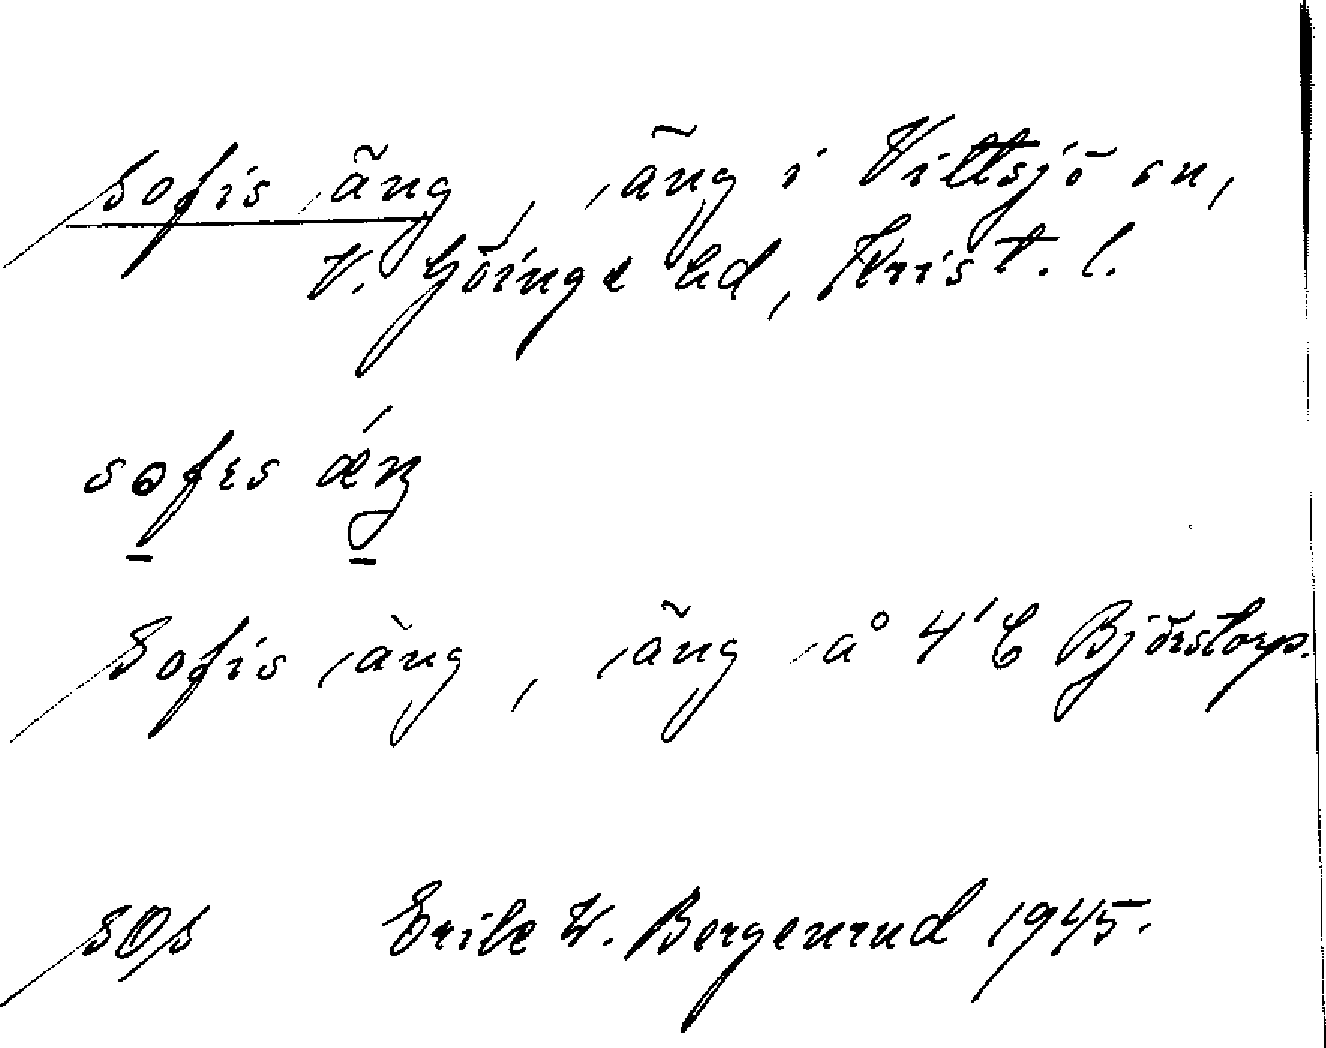 Sofis äng, äng i Vittsjö sn,
V. Göinge hd, Krist. l.
sofɪs ǽŋ
Sofis äng, äng å 4¹ C Bjärstorp.
SOS Erik W. Bergenrud 1945.